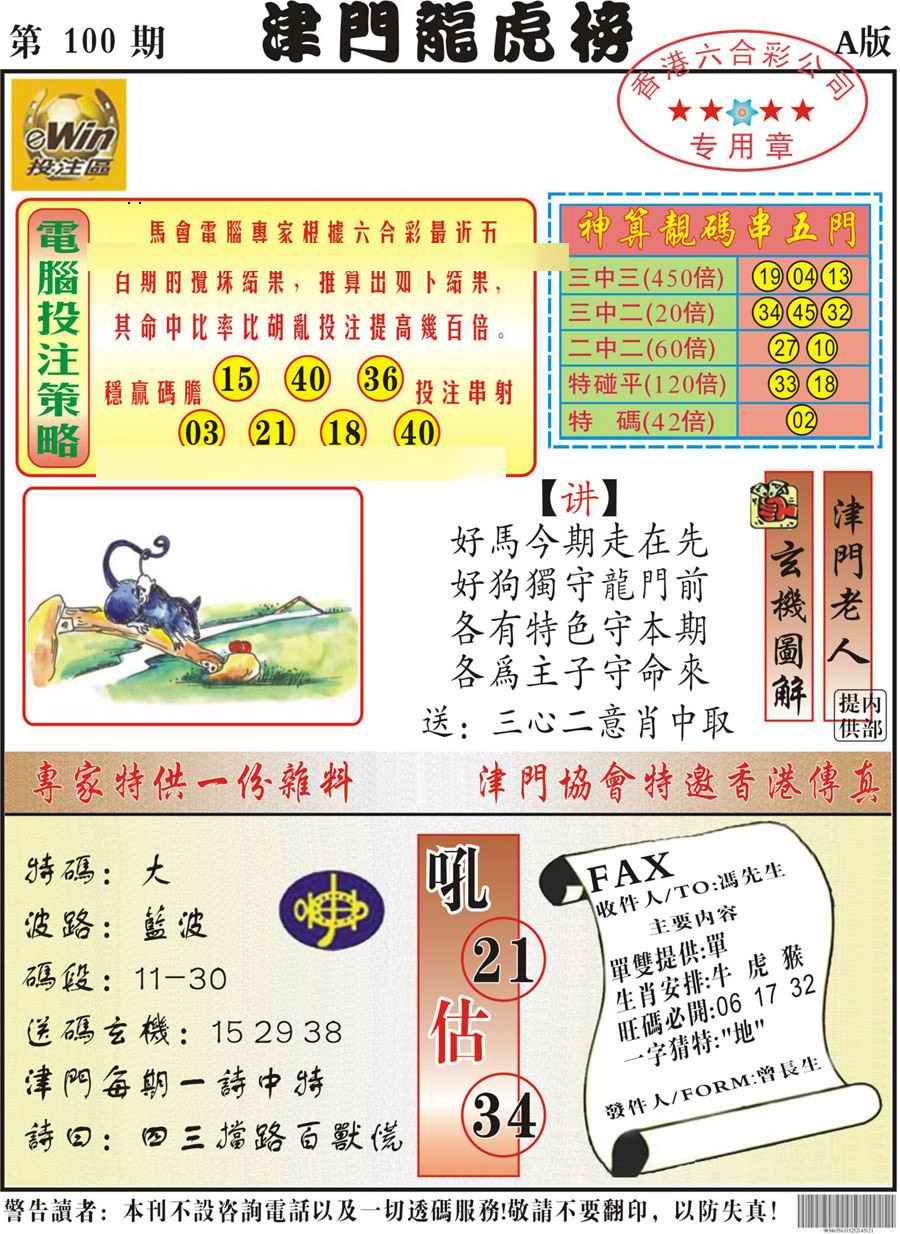 第 100 期
津門龍虎榜
A版
香港六合彩公司
专用章
eWin
投注區
電腦投注策略
馬會電腦專家根據六合彩最近五
百期的攪珠結果，推算出如下結果，
其命中比率比胡亂投注提高幾百倍。
穩贏碼膽 15 40 36 投注串射
03 21 18 40
神算靚碼串五門
三中三(450倍) 19 04 13
三中二(20倍) 34 45 32
二中二(60倍) 27 10
特碰平(120倍) 33 18
特 碼(42倍) 02
【讲】
好馬今期走在先
好狗獨守龍門前
各有特色守本期
各爲主子守命來
送：三心二意肖中取
玄機圖解
津門老人
内部提供
專家特供一份雜料
津門協會特邀香港傳真
特碼：大
波路：藍波
碼段：11-30
送碼玄機：15 29 38
津門每期一詩中特
詩曰：四三擋路百獸慌
吼
21
估
34
FAX
收件人/TO:馮先生
主要内容
單雙提供:單
生肖安排:牛 虎 猴
旺碼必開:06 17 32
一字猜特:"地"
發件人/FORM:曾長生
警告讀者：本刊不設咨詢電話以及一切透碼服務!敬請不要翻印，以防失真!